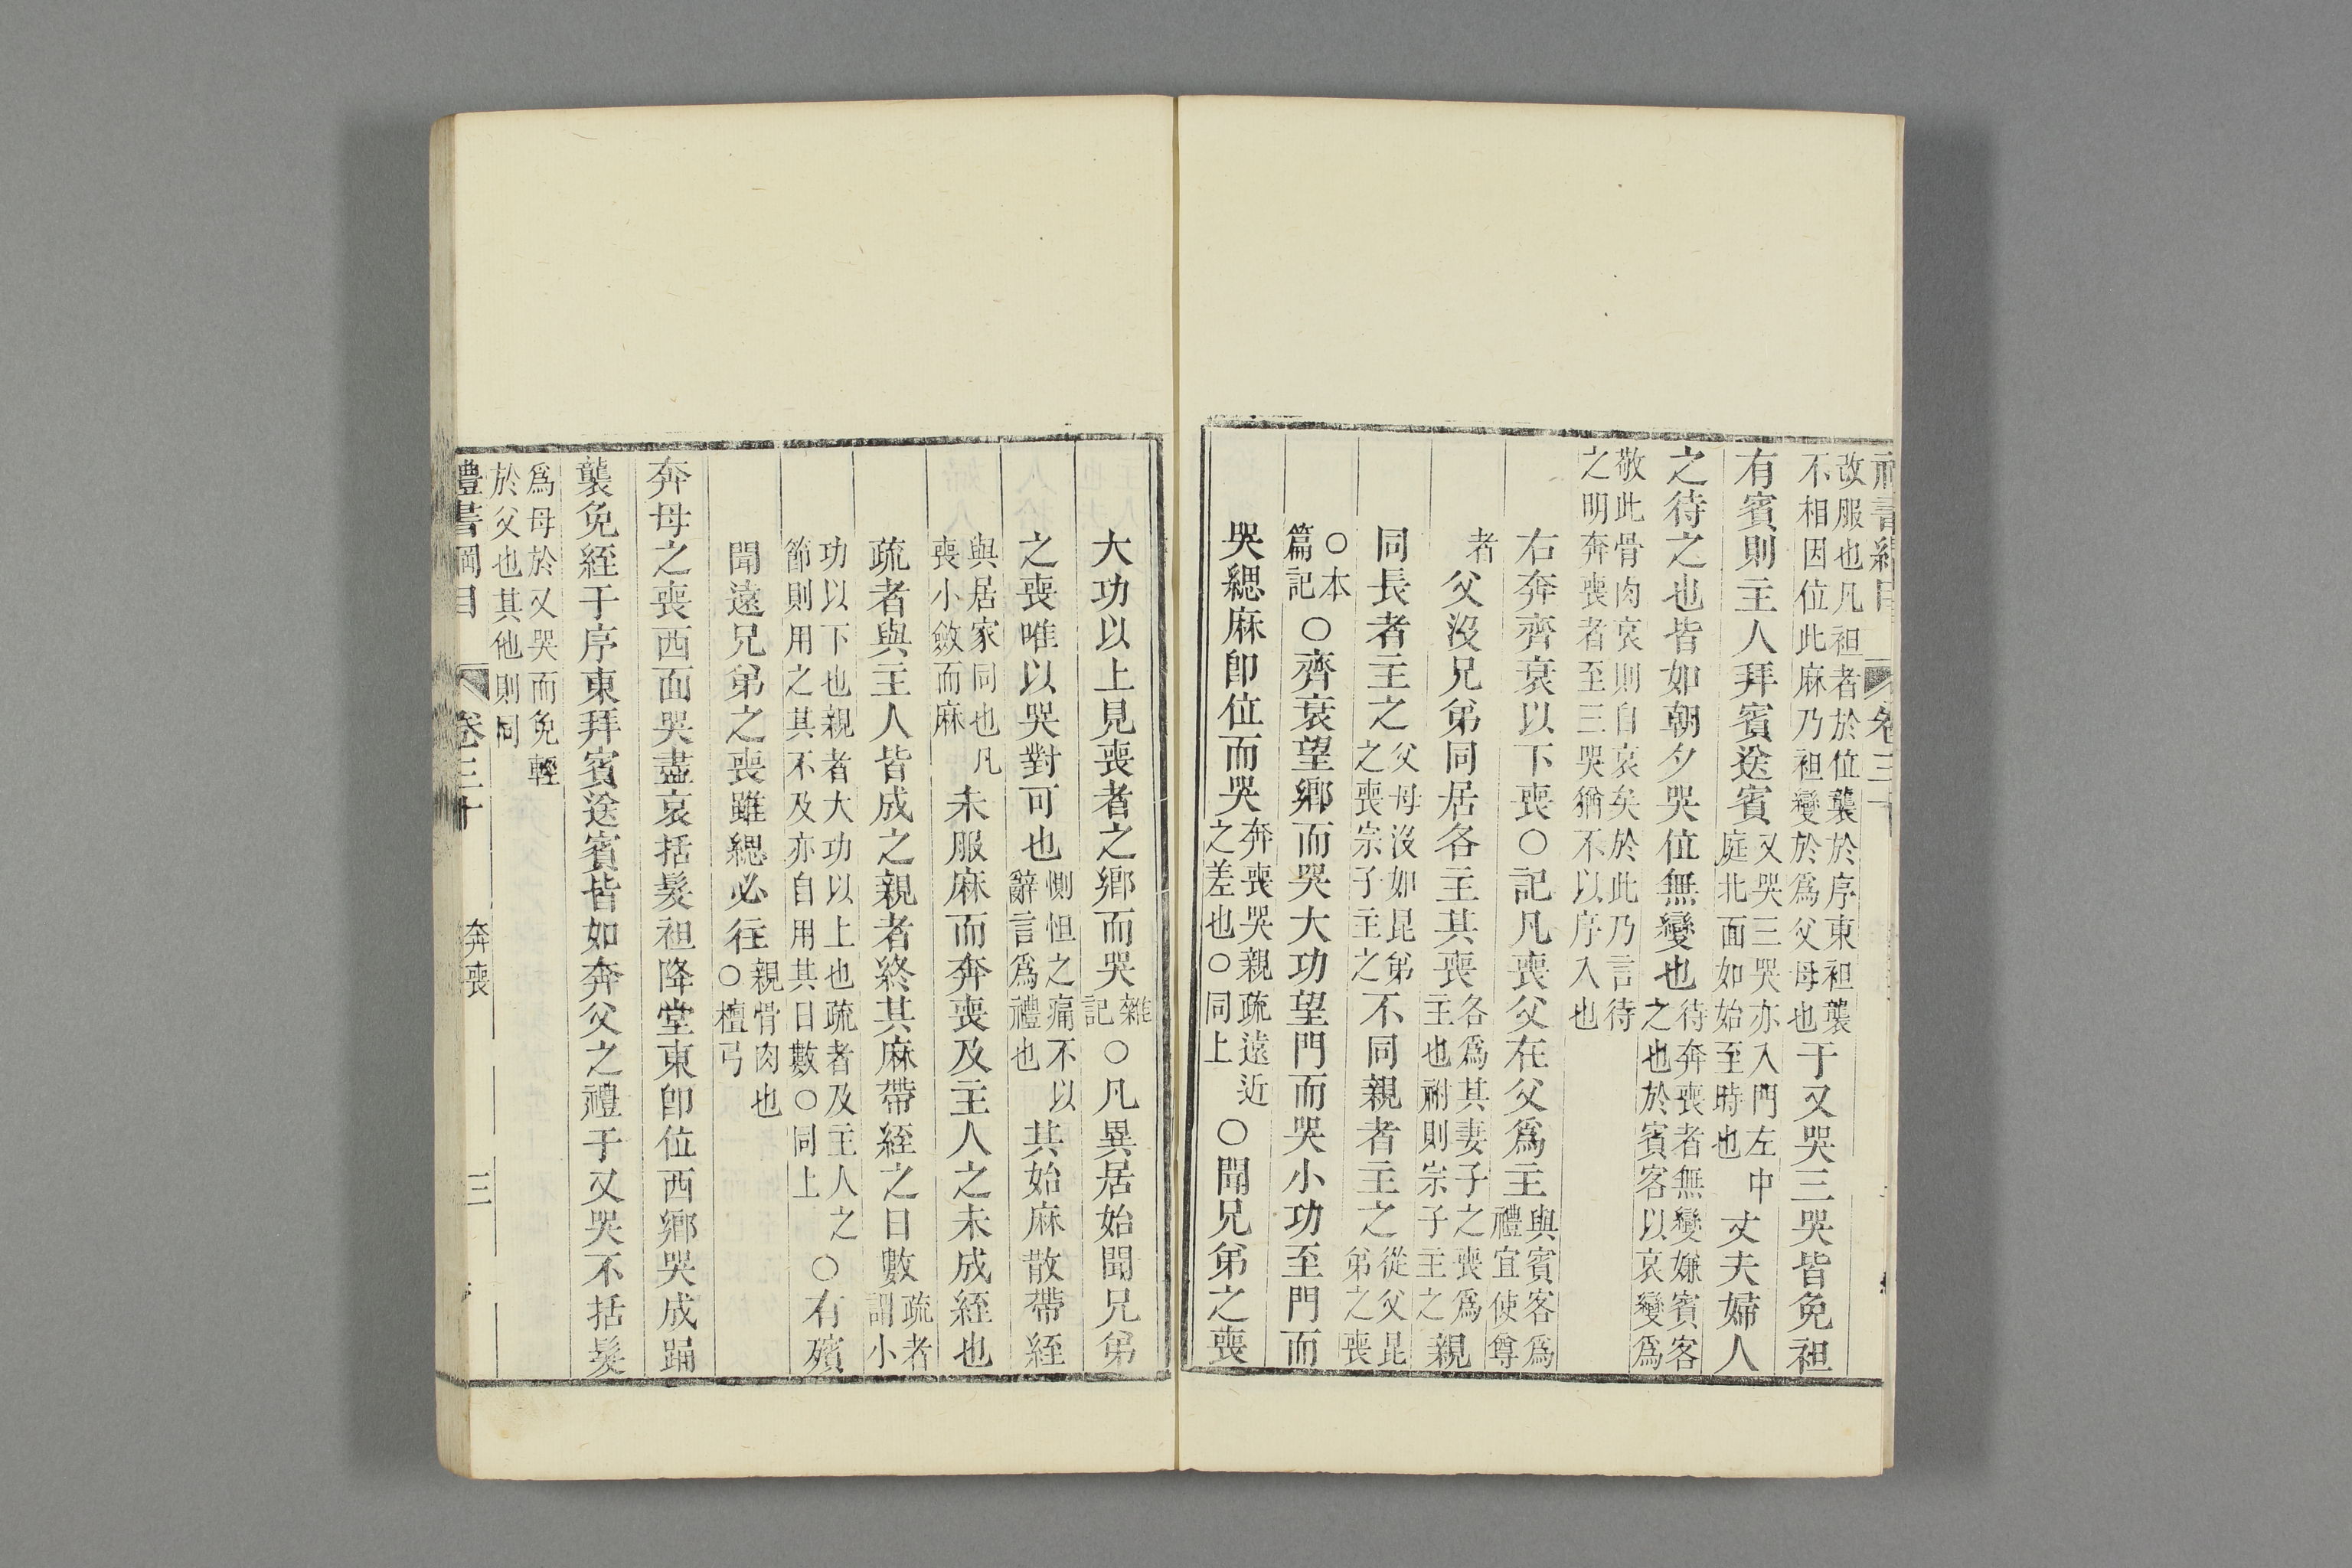 禮書綱目 卷三十
改服也凡袒者於位襲於序東袒襲
不相因位此麻乃袒變於爲父母也
于又哭三哭皆免袒
有賓則主人拜賓送賓
又哭三哭亦入門左中
庭北面如始至時也
丈夫婦人
之待之也皆如朝夕哭位無變也
待奔喪者無變嫌賓客
之也於賓客以哀變爲
敬此骨肉哀則自哀矣於此乃言待
之明奔喪者至三哭猶不以序入也
右奔齊衰以下喪○記凡喪父在父爲主
與賓客爲
禮宜使尊
者
父沒兄弟同居各主其喪
各爲其妻子之喪爲
主也祔則宗子主之
親
同長者主之
父母沒如昆弟
之喪宗子主之
不同親者主之
從父昆
弟之喪
○本
篇記
○齊衰望鄉而哭大功望門而哭小功至門而
哭緦麻即位而哭
奔喪哭親疏遠近
之差也○同上
○聞兄弟之喪
大功以上見喪者之鄉而哭
雜
記
○凡異居始聞兄弟
之喪唯以哭對可也
惻怛之痛不以
辭言爲禮也
其始麻散帶絰
與居家同也凡
喪小斂而麻
未服麻而奔喪及主人之未成絰也
疏者與主人皆成之親者終其麻帶絰之日數
疏者
謂小
功以下也親者大功以上也疏者及主人之
節則用之其不及亦自用其日數○同上
○有殯
聞遠兄弟之喪雖緦必往
親骨肉也
○檀弓
奔母之喪西面哭盡哀括髮袒降堂東即位西鄉哭成踊
襲免絰于序東拜賓送賓皆如奔父之禮于又哭不括髮
爲母於又哭而免輕
於父也其他則同
禮書綱目 卷三十 奔喪 三